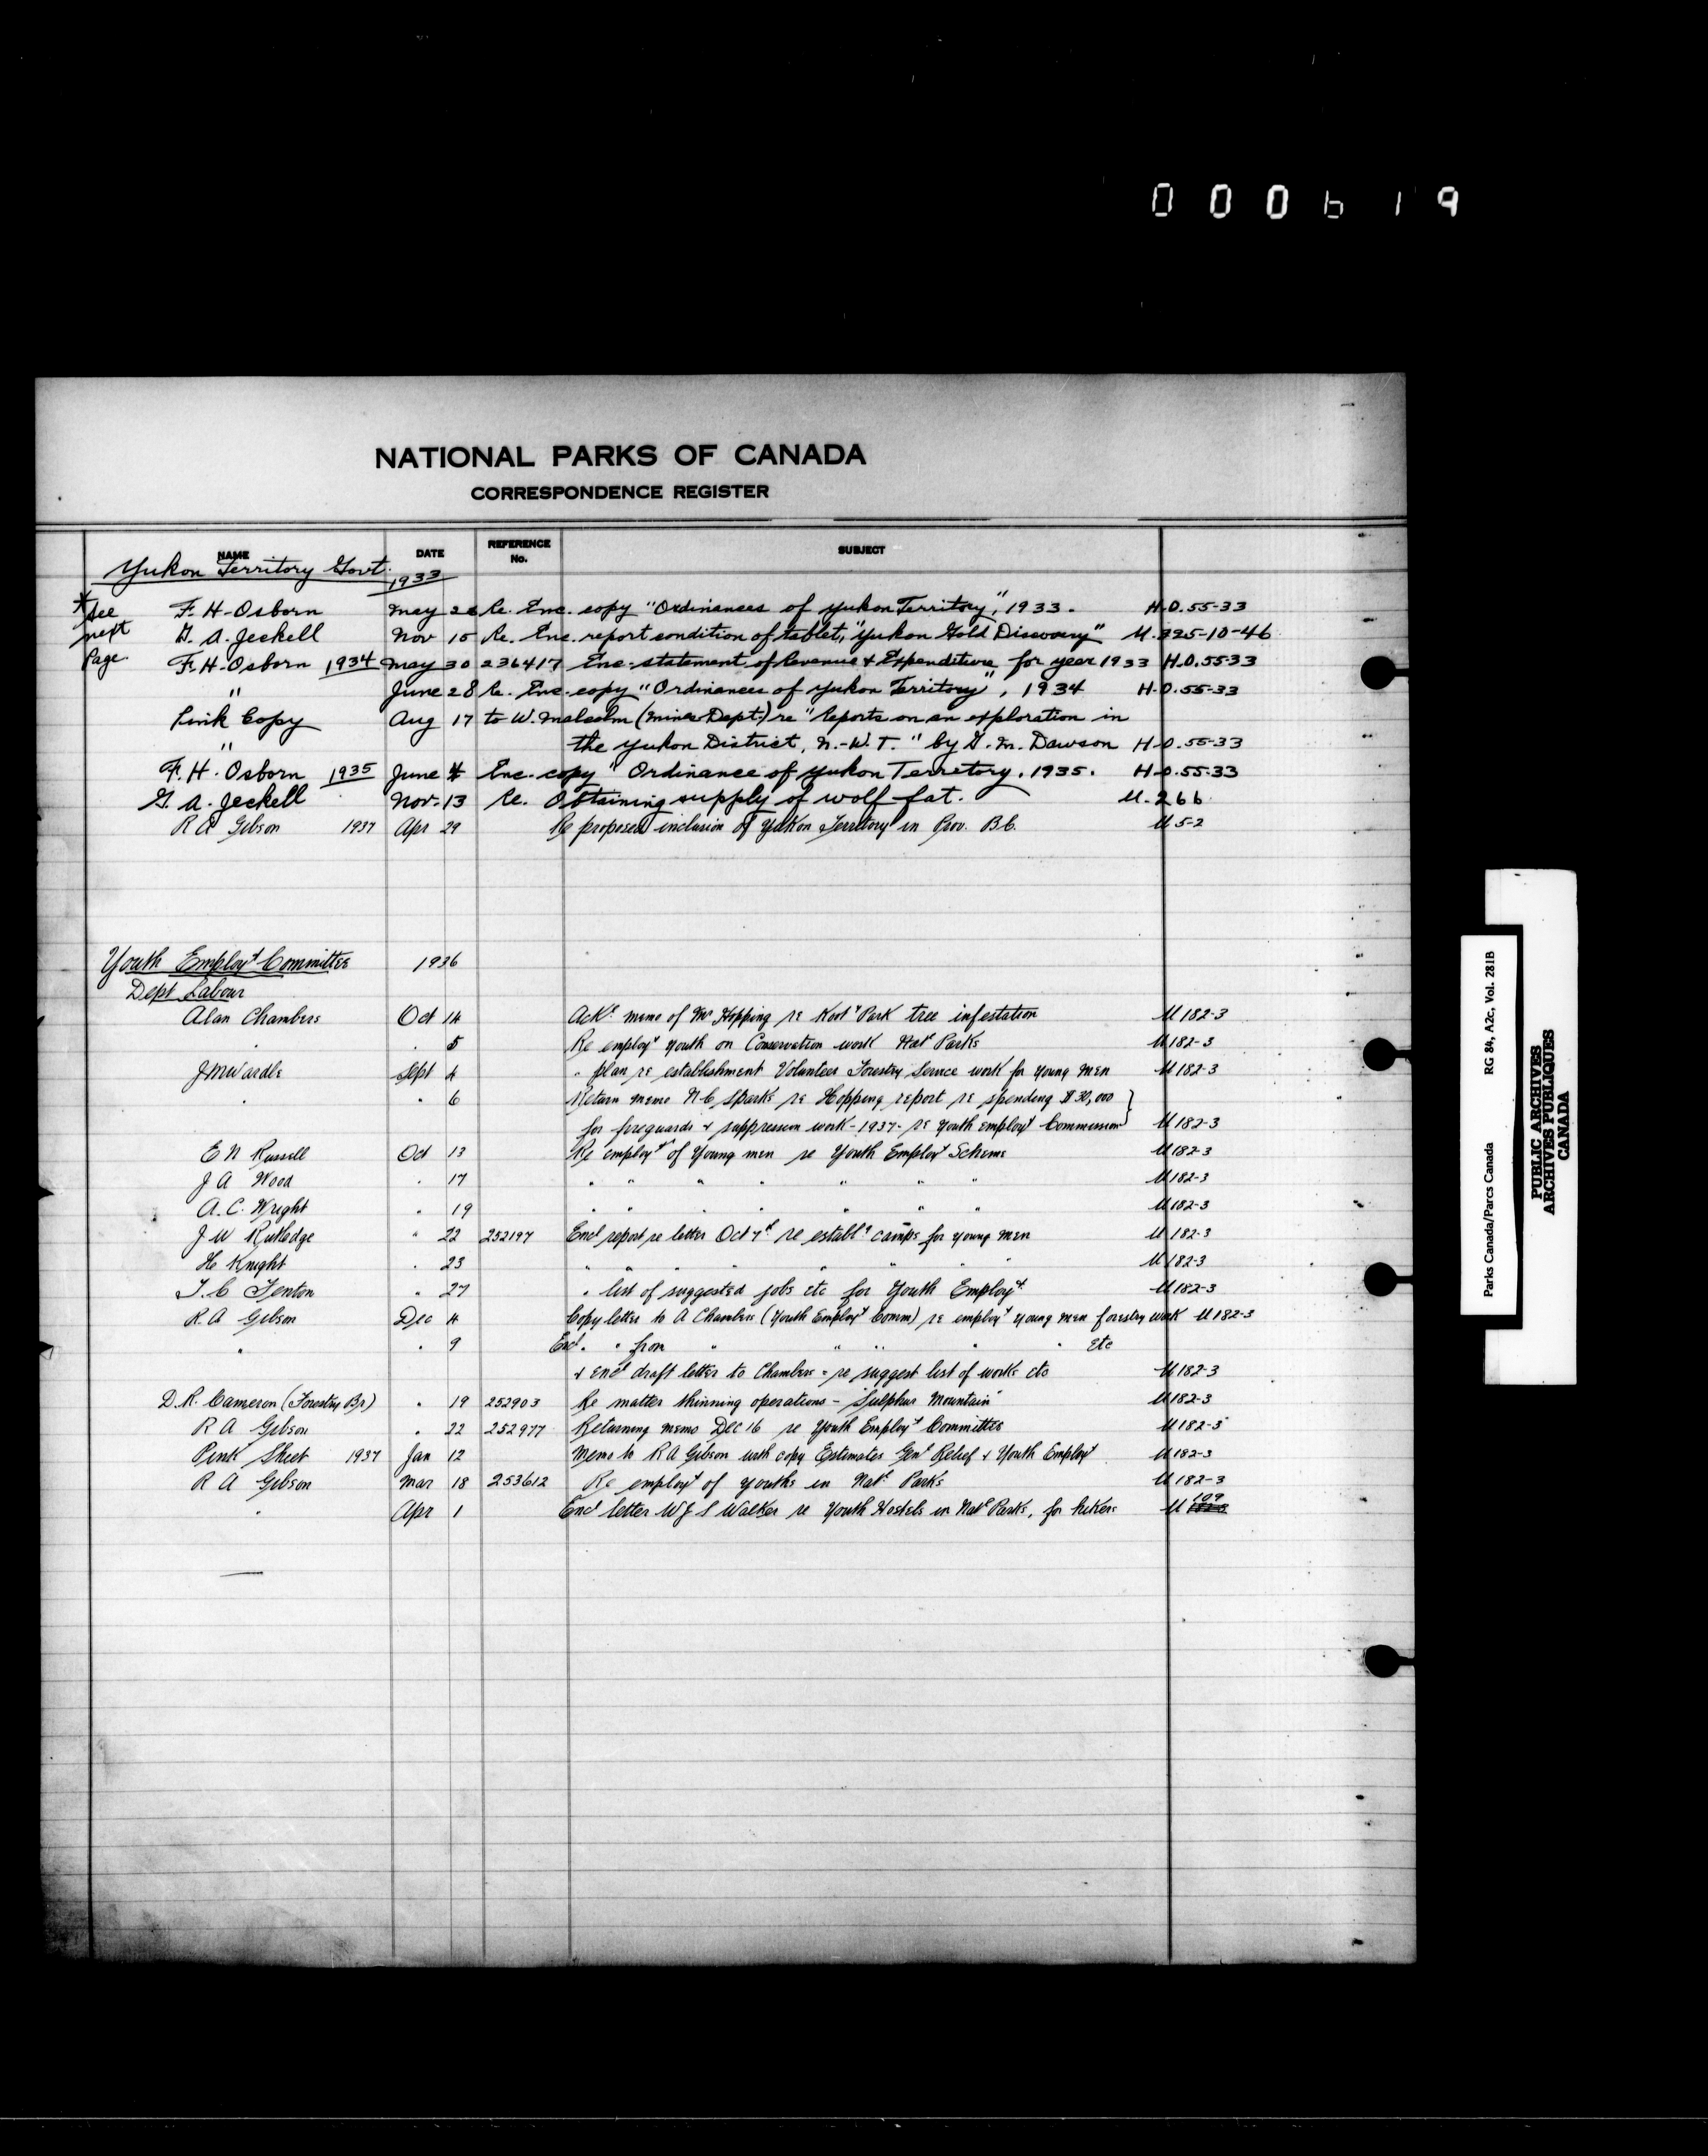 000619
NATIONAL PARKS OF CANADA
CORRESPONDENCE REGISTER
NAME DATE REFERENCE No. SUBJECT
Yukon Territory Govt. 1933
* See F. H. Osborn May 26 Re. Enc. copy "Ordinances of Yukon Territory", 1933. H.O.55-33
next G. A. Jeckell Nov 15 Re. Enc. report condition of tablet, "Yukon Gold Discovery" U.325-10-46
Page. F. H. Osborn 1934 May 30 236417 Enc. statement of Revenue & Expenditure for year 1933 H.O.55-33
" June 28 Re. Enc. copy "Ordinances of Yukon Territory", 1934 H.O.55-33
Pink Copy Aug 17 to W. Malcolm (Mines Dept.) re "Reports on an exploration in
" the Yukon District, N.-W.T." by G. M. Dawson H.O.55-33
F. H. Osborn 1935 June 4 Enc. copy "Ordinance of Yukon Territory. 1935. H.O.55-33
G. A. Jeckell Nov. 13 Re. Obtaining supply of wolf fat. U.266.
R A Gibson 1937 Apr 29 Re proposed inclusion of Yukon Territory in Prov. B.C. U 5-2
Youth Employt Committee 1936
Dept Labour
Alan Chambers Oct 14 Ackg memo of Mr Hopping re Koot'y Park tree infestation U 182-3
" " 5 Re employt youth on Conservation work Natl Parks U 182-3
J M Wardle Sept 4 " plan re establishment Volunteer Forestry Service work for young men U 182-3
" " 6 Return memo N C Sparks re Hopping report re spending $30,000
for fireguards & suppression work - 1937 - re Youth Employt Commission U 182-3
E N Russell Oct 13 Re employt of young men re Youth Employt Scheme U 182-3
J A Wood " 17 " " " " " " " U 182-3
A. C. Wright " 19 " " " " " " " U 182-3
J W Rutledge " 22 252197 Encl report re letter Oct 7th re establg camps for young men U 182-3
H Knight " 23 " " " " " " " " U 182-3
T. C Fenton " 27 " list of suggested jobs etc for Youth Employt U 182-3
R. A Gibson Dec 4 Copy letter to A Chambers (Youth Employt Comm) re employt young men forestry work U 182-3
" " 9 Encl " " from " " " " " " Etc
& encl draft letter to Chambers - re suggest list of works etc U 182-3
D. R. Cameron (Forestry Br) " 19 252903 Re matter thinning operations - "Sulphur Mountain" U 182-3
R A Gibson " 22 252977 Returning memo Dec 16 re Youth Employt Committee U 182-3
Pink Sheet 1937 Jan 12 Memo to R A Gibson with copy Estimates Genl Relief & Youth Employt U 182-3
R A Gibson Mar 18 253612 Re employt of youths in Natl Parks U 182-3
" Apr 1 Encl letter W J S Walker re Youth Hostels in Natl Parks, for hikers U 109
Parks Canada/Parcs Canada RG 84, A2c, Vol. 281B
PUBLIC ARCHIVES
ARCHIVES PUBLIQUES
CANADA